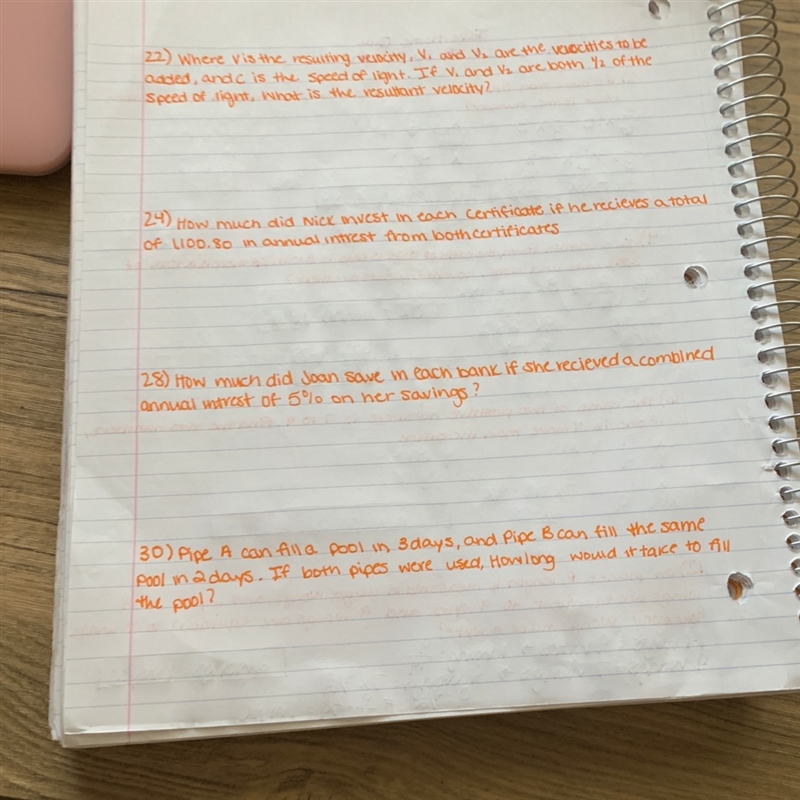 22) Where V is the resulting velocity, V₁ and V₂ are the velocities to be
added, and C is the speed of light. If V₁ and V₂ are both ½ of the
speed of light, What is the resultant velocity?
24) How much did Nick invest in each certificate if he recieves a total
of 1,100.80 in annual intrest from both certificates
28) How much did Joan save in each bank if she recieved a combined
annual intrest of 5% on her savings?
30) Pipe A can fill a pool in 3 days, and Pipe B can fill the same
pool in 2 days. If both pipes were used, How long would it take to fill
the pool?